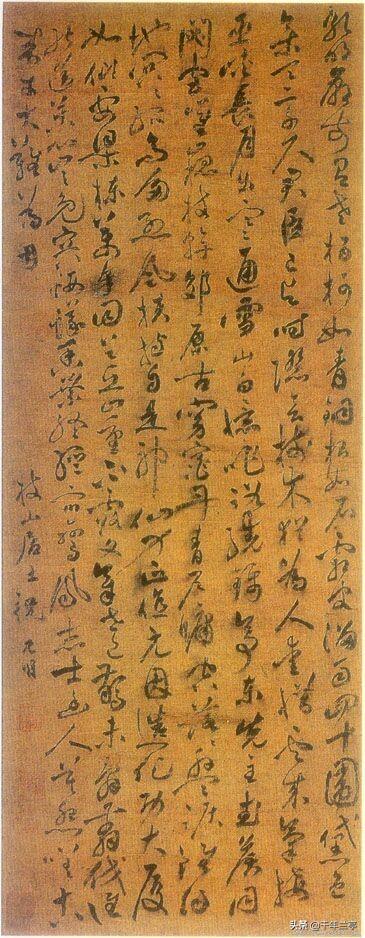 孔明廟前有老柏柯如青銅根如石霜皮溜雨四十圍黛色
參天二千尺君臣已與時際會樹木猶為人愛惜雲來氣接
巫峽長月出寒通雪山白憶昨路繞錦亭東先主武侯同
閟宮崔嵬枝幹郊原古窈窕丹青戶牖空落落盤踞雖得
地冥冥孤高多烈風扶持自是神仙力正直元因造化功大廈
如傾要梁棟萬牛回首丘山重不露文章世已驚未辭翦伐誰
能送苦心豈免容螻蟻香葉終經宿鸞鳳志士幽人莫怨嗟古
來材大難為用
枝山居士祝允明
头条 @千年兰亭